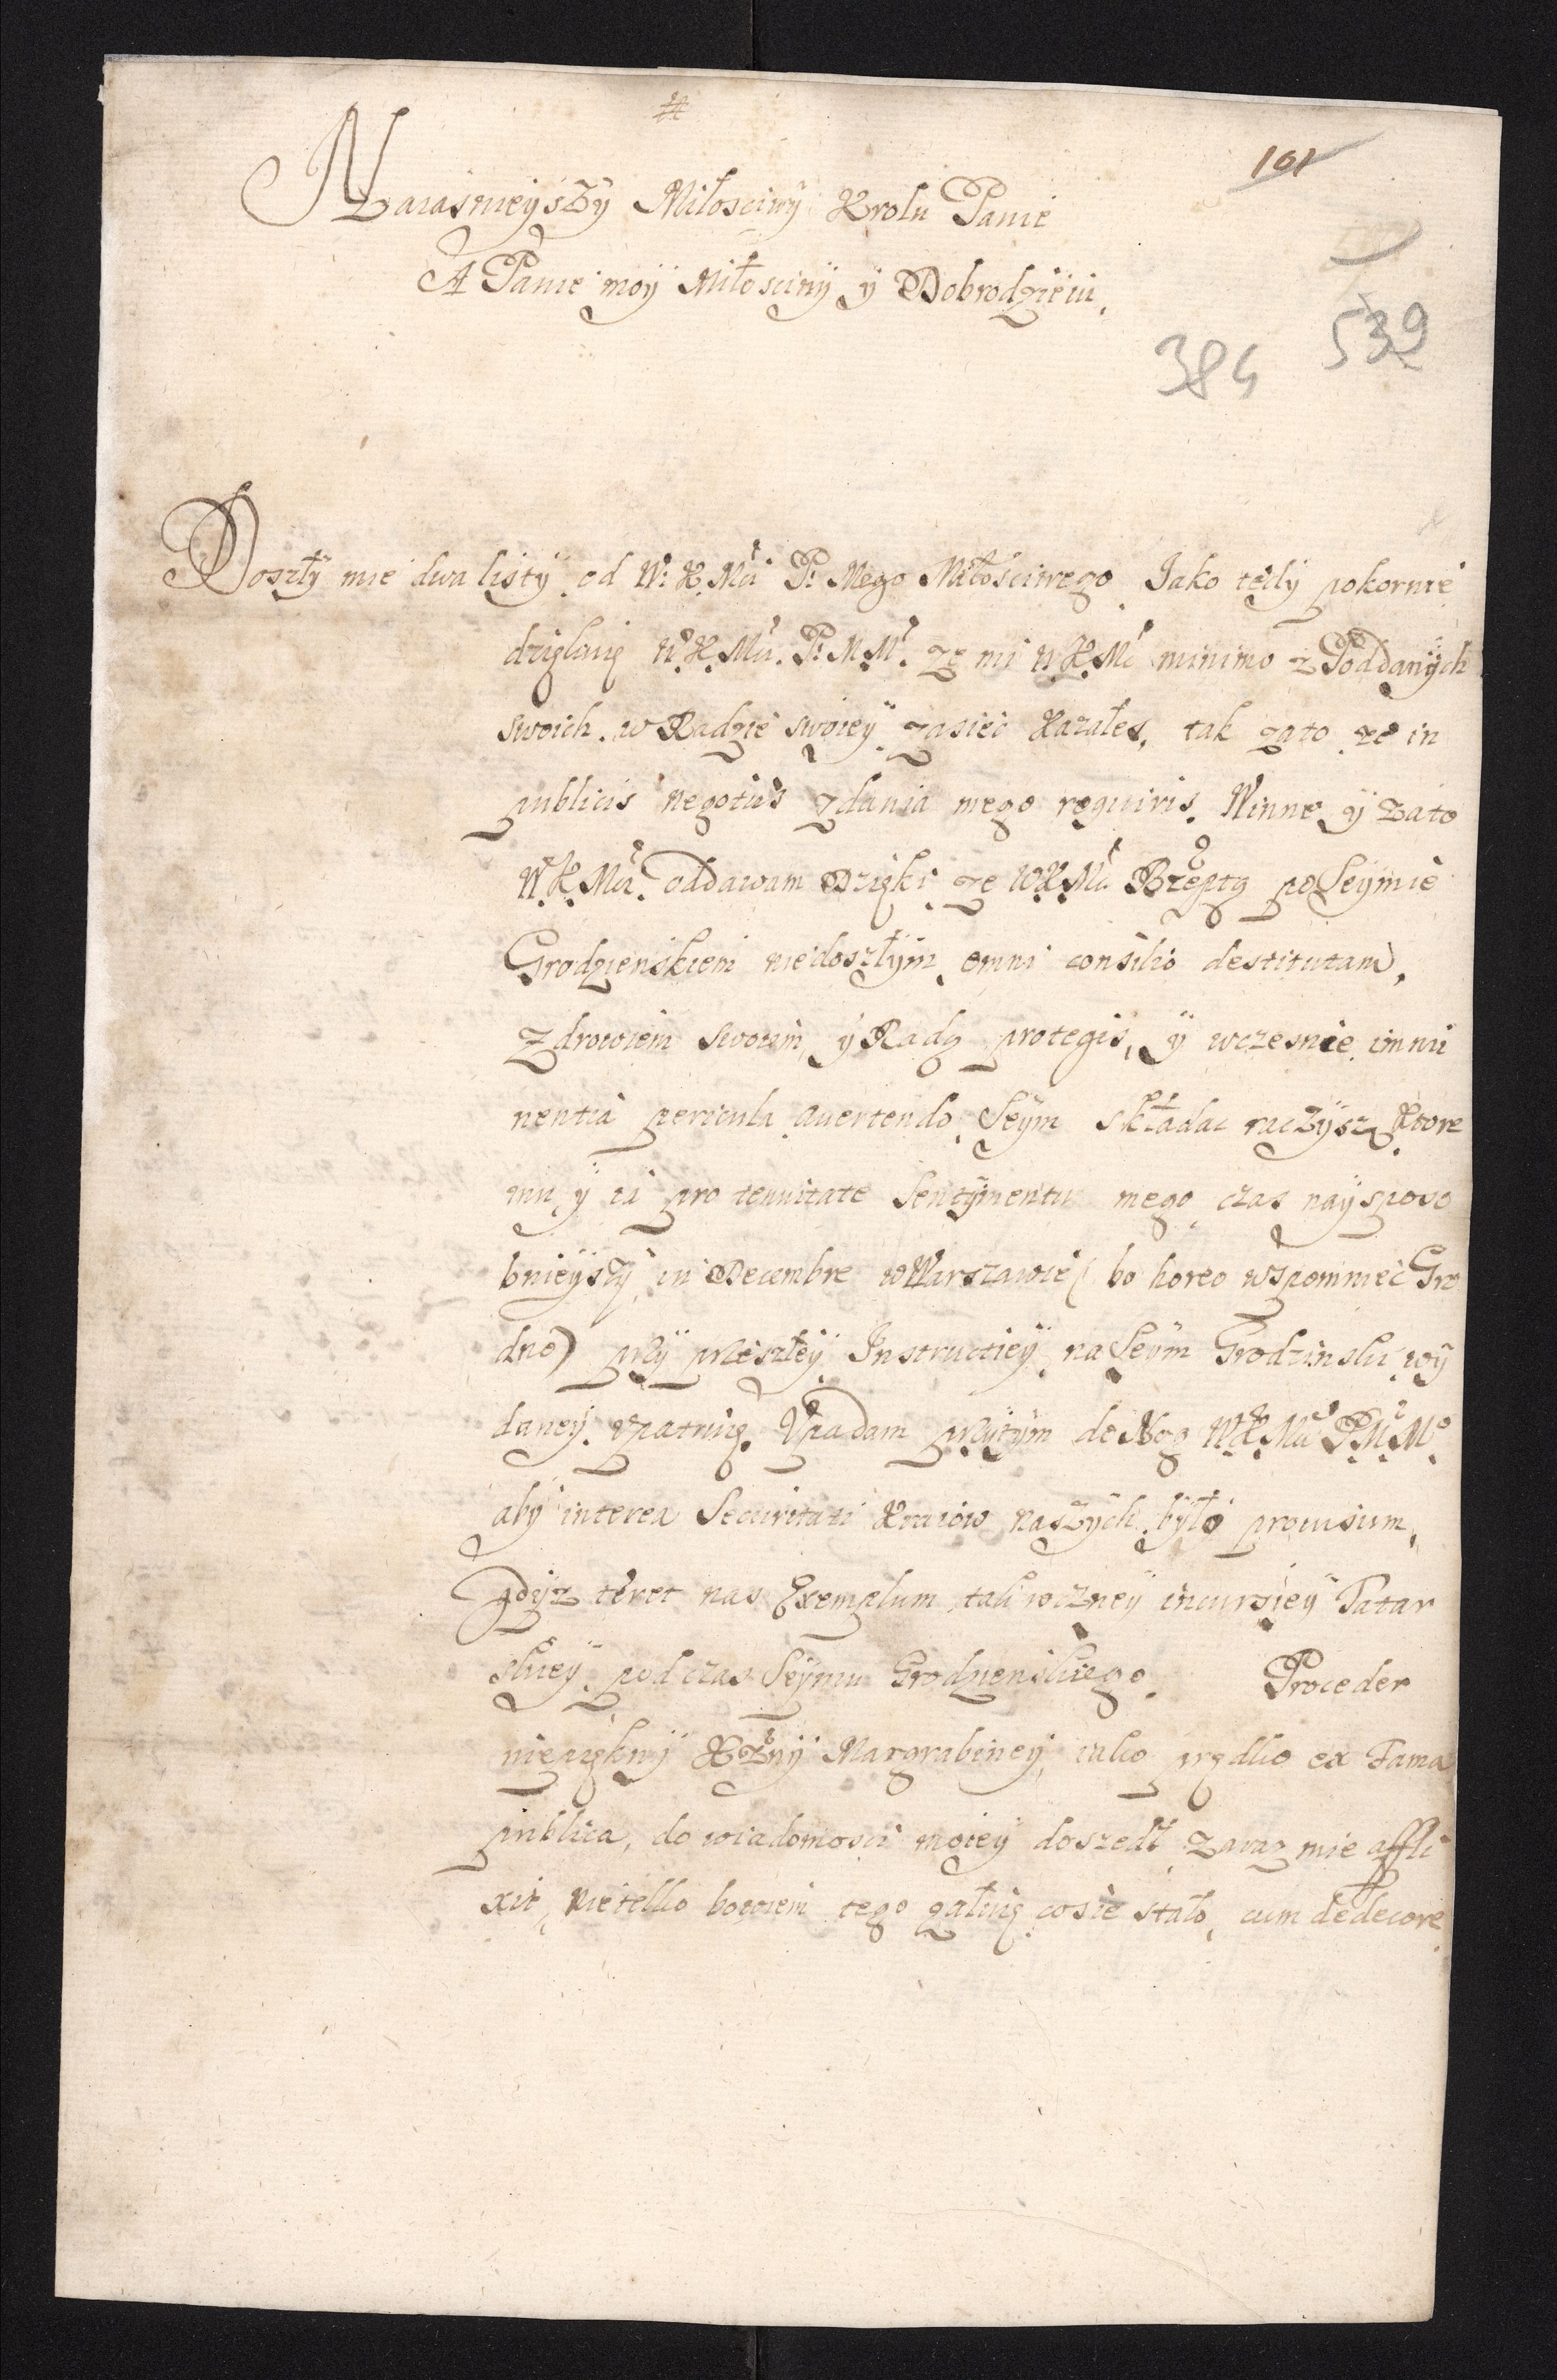 #
101
Naiasnieyszÿ Miłosciwÿ Krolu Panie
A Panie moÿ Miłosciwÿ ÿ Dobrodzieiu,
539
384
Doszłÿ mie dwa listÿ od W. K. Mci P. Mego Miłosciwego. Jako tedÿ pokornie
dziękuię W. K. Mci. P. M. M. ze mi W. K. Mć minimo z Poddanÿch
swoich w Radzie swoieÿ zasieć Kazałes, tak zato ze in
publicis negotiis zdania mego requiris. Winne ÿ zato
W. K. Mci. oddawam Dzięki ze W K Mć Rzeptą po Seÿmie
Grodzienskiem niedoszłÿm, omni consilio destitutam,
zdrowiem swoim, ÿ Radą protegis, ÿ wczesnie immi
nentia pericula auertendo, Seÿm składac raczÿsz, Ktore
mu ÿ ia pro tenuitate Sentÿmentu mego czas naÿsposo
bnieÿszÿ in Decembre w Warszawie (bo horeo wspomniec Gro
dno) przÿ przeszłeÿ Instructieÿ na Seÿm Grodzinski wÿ
daneÿ vpatruię. Vpadam przÿtÿm do Nog W. K. Mci P. M. M.
abÿ interea Securitati Kraiow naszÿch bÿło prouisum,
gdÿz terret nas Exemplum takroczneÿ incursieÿ Tatar
skieÿ, podczas Seÿmu Grodzienskiego. Proceder
niepięknÿ Xżnÿ Margrabineÿ, iako prędko ex Fama
publica, do wiadomosci moieÿ doszedł zaraz mie affli
xit, nietelko bowiem tego załuię cosie stało, cum dedecore